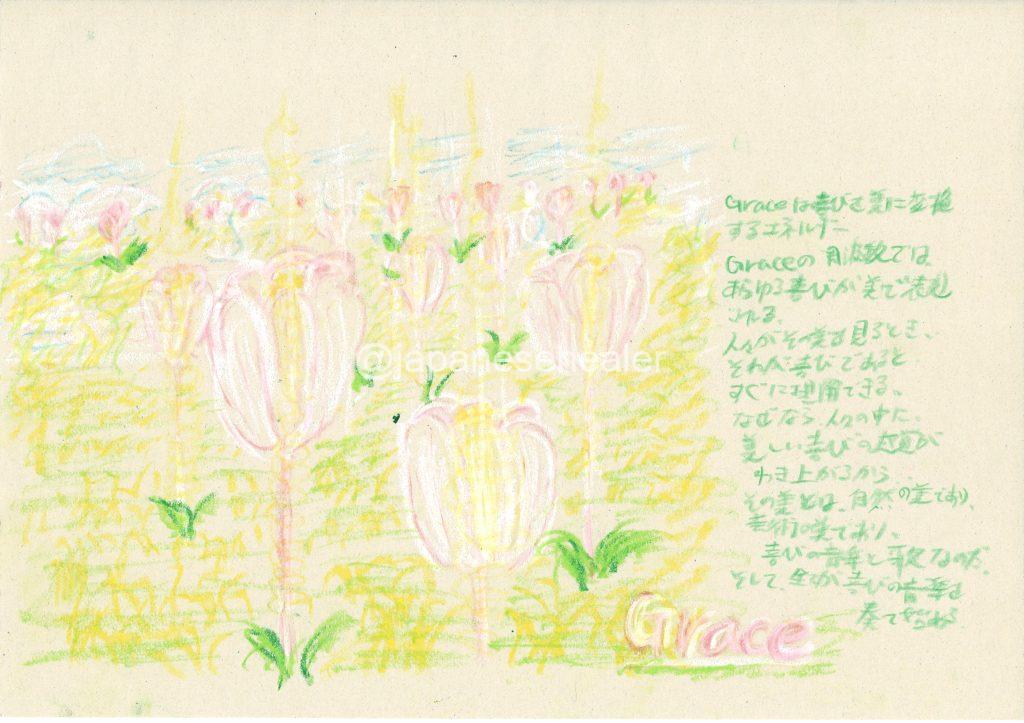 Graceは喜びを美に変換
するエネルギー
Graceの周波数では
あらゆる喜びが美で表現
される。
人々がその美を見るとき、
それが喜びであると
すぐに理解できる。
なぜなら、人々の中に
美しい喜びの感覚が
わき上がるから
その美とは、自然の美であり、
芸術の美であり、
喜びの音楽と歌なのだ。
そして、全てが喜びの音楽を
奏で始める
Grace
@japanesehealer